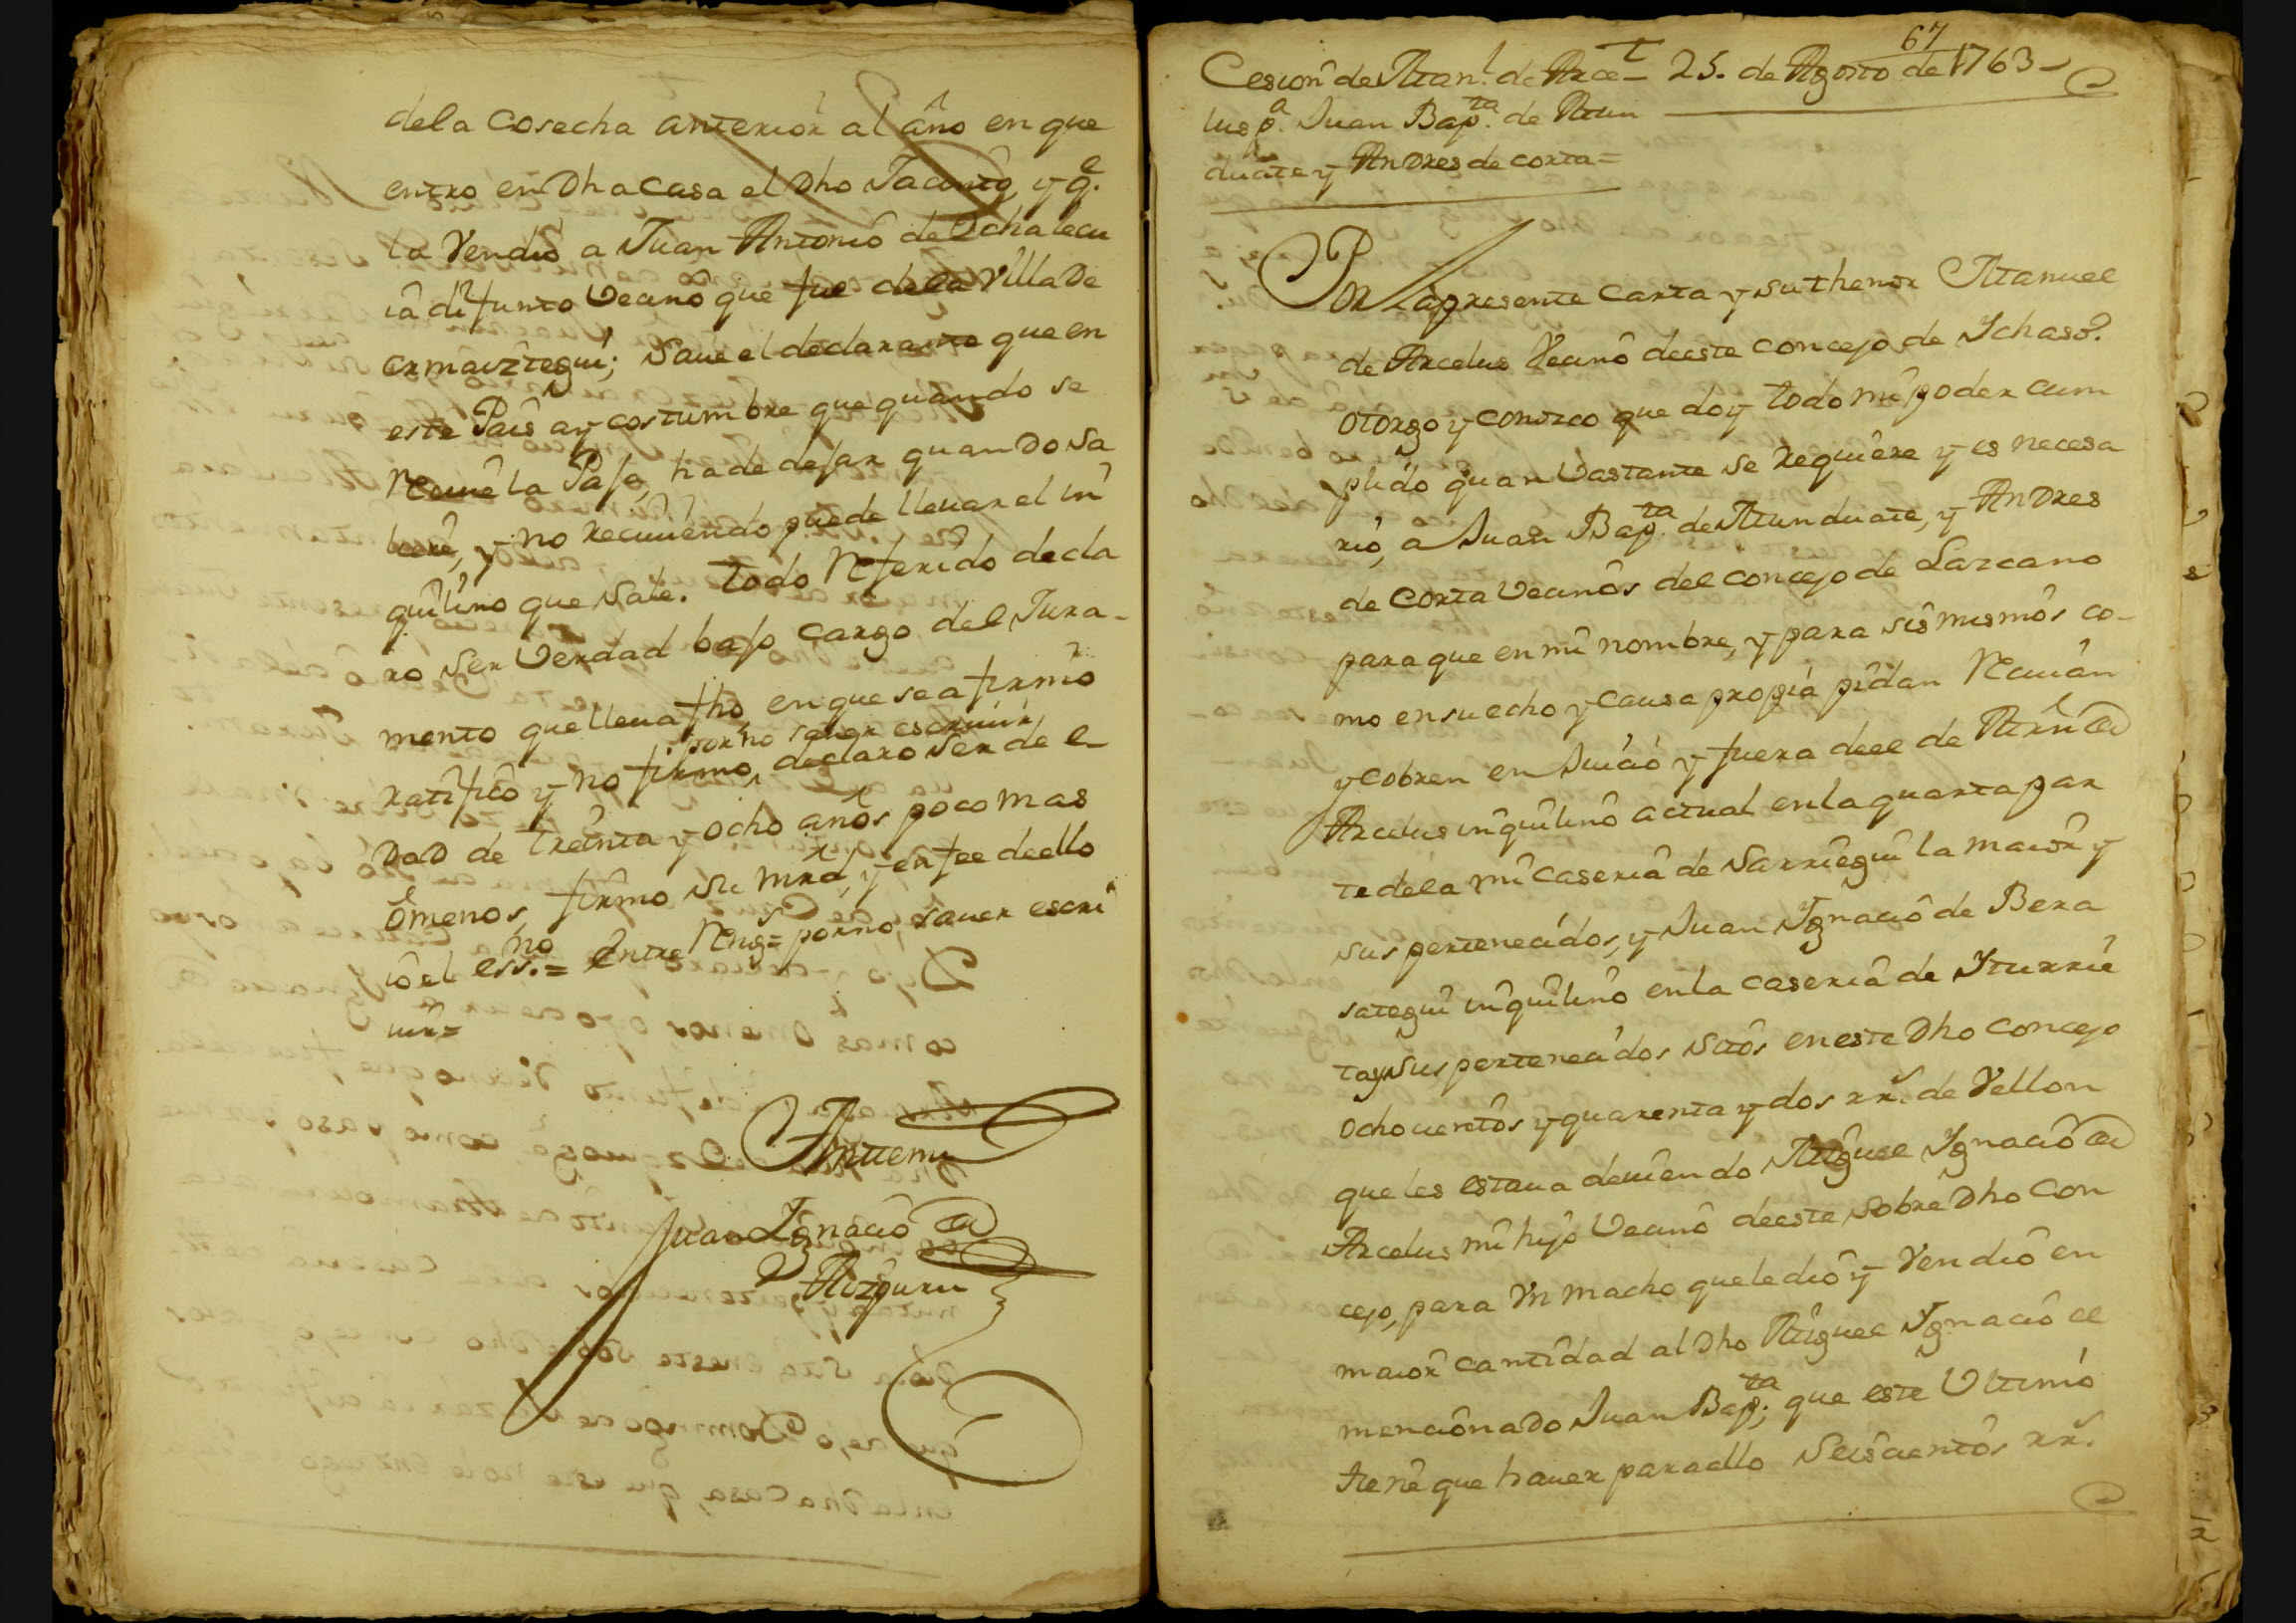 dela cosecha anterior al año en que
entro en Dha Casa el Dho Jacinto, y q.e
la Vendio a Juan Antonio de Echalecu
ia difunto Vecino que fue de la Villa De
ermaiztegui; Saue el declarante que en
este Pais ay costumbre que quando se
Reciue la Paja, ha de dejar quando Sa
liere, y no reciuiendo puede lleuar el in
quilino que Sale. Todo Referido decla
ro Ser Verdad bajo cargo del Jura-
mento que lleua fho en que se afirmo
por no sauer escriuir,
ratifico y no firmo, declaro Ser de e-
DaD de treinta y ocho años poco mas
ô menos, firmo Su mrd, y en fee de ello
io el ess.no = Entre Rengs = por no sauer escri
uir =
Antemi
Juan Ignacio de
Aizpuru
67
Cesion de Man.l de Arce- 25. de Agosto de 1763-
lus p.a Juan Bap.ta de Mun
duate y Andres de corta =
Por la presente carta y su thenor Manuel
de Arcelus Vecino de este concejo de Ichaso.
otorgo y conozco que doy todo mi poder cum
plido quan Vastante se requiere y es necesa
rio, a Juan Bap.ta de Munduate, y Andres
de Corta Vecinos del concejo de Lazcano
para que en mi nombre, y para sis mismos co-
mo en su echo y causa propia pidan Reciuan
y cobren en Juicio y fuera de el de Mrn de
Arcelus inquilino actual en la quarta par
te de la mi Caseria de Sarriegui la maior y
sus pertenecidos, y Juan Ignacio de Bera
sategui inquilino en la caseria de Iturrie
ta y Sus pertenecidos Sitos en este Dho Concejo
ochocientos y quarenta y dos rr.s de Vellon
que les estaua deuiendo Miguel Ignacio de
Arcelus mi hijo Vecino de este Sobre Dho Con
cejo, para Vn macho que le dio y Vendio en
maior cantidad al Dho Miguel Ignacio el
mencionado Juan Bap.ta; que este Vltimo
tiene que hauer para ello Seiscientos rr.s